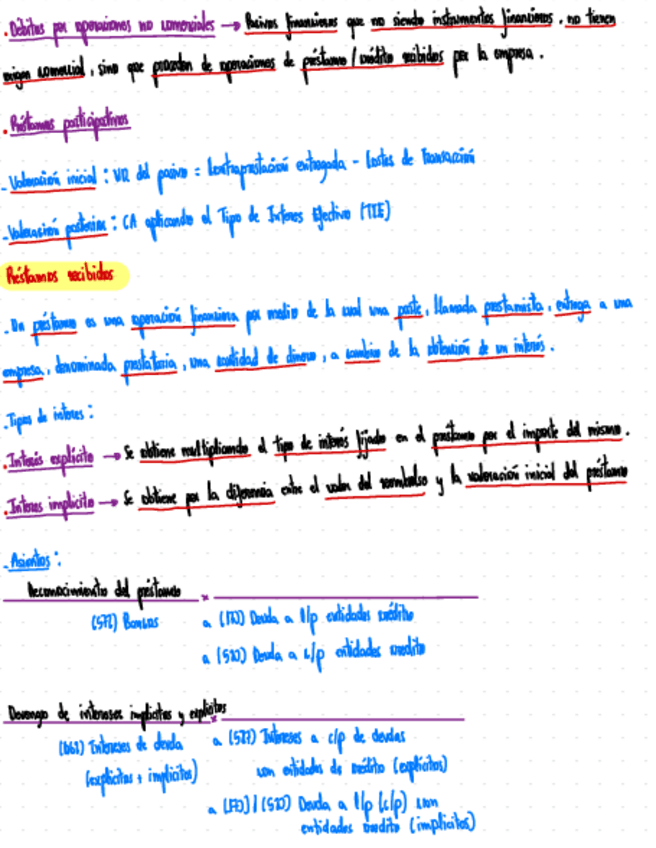 . Débitos por operaciones no comerciales → Pasivos financieros que no siendo instrumentos financieros, no tienen
origen comercial, sino que proceden de operaciones de préstamo / crédito recibidos por la empresa.
. Préstamos participativos
- Valoración inicial: VR del pasivo = Contraprestación entregada - Costes de Transacción
- Valoración posterior: CA aplicando el Tipo de Interes Efectivo (TIE)
Préstamos recibidos
- Un préstamo es una operación financiera por medio de la cual una parte, llamada prestamista, entrega a una
empresa, denominada prestataria, una cantidad de dinero, a cambio de la obtención de un interés.
- Tipos de interes:
. Interés explícito → Se obtiene multiplicando el tipo de interés fijado en el préstamo por el importe del mismo.
. Interes implícito → Se obtiene por la diferencia entre el valor del reembolso y la valoración inicial del préstamo
- Asientos:
Reconocimiento del préstamo x
(572) Bancos a (170) Deuda a l/p entidades crédito
a (520) Deuda a c/p entidades credito
Devengo de intereses implícitos y explícitos x
(661) Intereses de deuda a (527) Intereses a c/p de deudas
(explícitos + implícitos) con entidades de crédito (explícitos)
a (170) / (520) Deuda a l/p (c/p) con
entidades credito (implicitos)